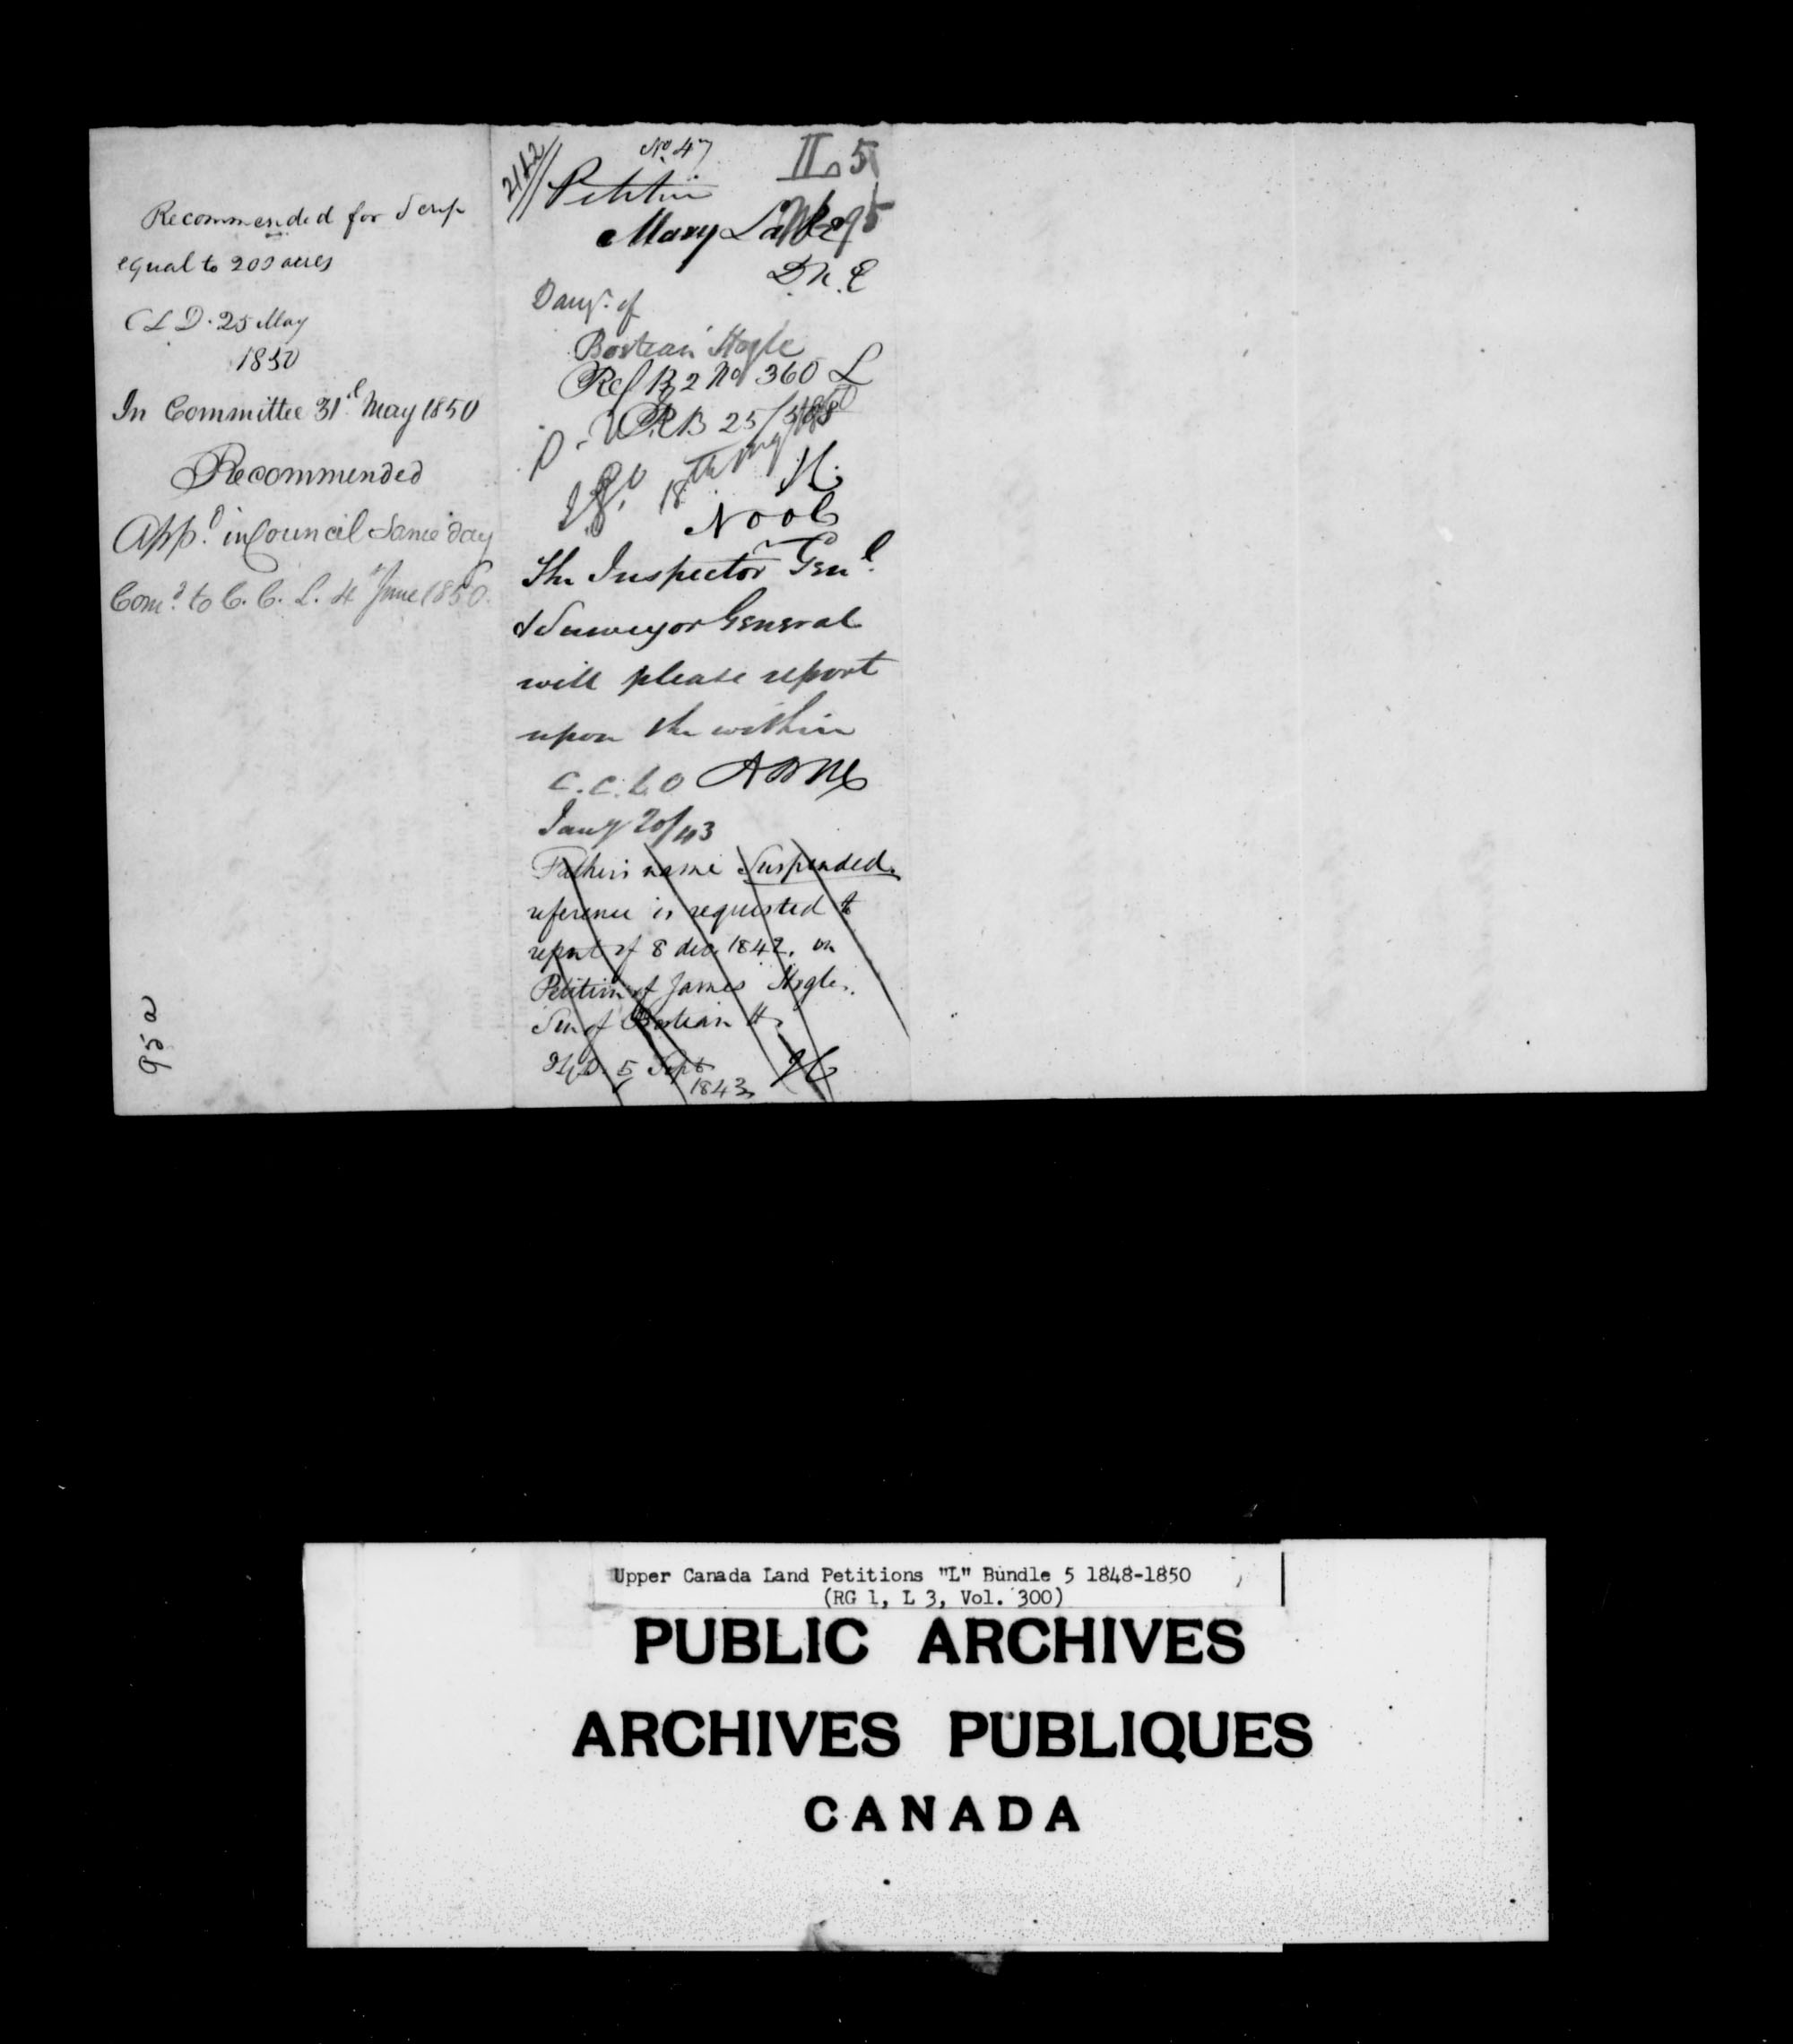 Recommended for Scrip
equal to 200 acres
C L D. 25 May
1850
In Committee 31st May 1850
Recommended
App.d in Council Same day
Com.d to C. C. L. 4th June 1850.
95a
2142
No 47
L 5
Petition
Mary
95
Daugr. of
Bostean Hogle
Ref B 2 No 360 L
25/
18th
No O C
The Inspector Genl.
& Surveyor General
will please report
upon the within
C.C.L.O
Jany 20/43
Father's name Suspended.
reference is requested to
report of 8 dec. 1842, on
Petition of James Hogle,
Son of Bostean H.
5 Sept
1843
Upper Canada Land Petitions "L" Bundle 5 1848-1850
(RG 1, L 3, Vol. 300)
PUBLIC ARCHIVES
ARCHIVES PUBLIQUES
CANADA